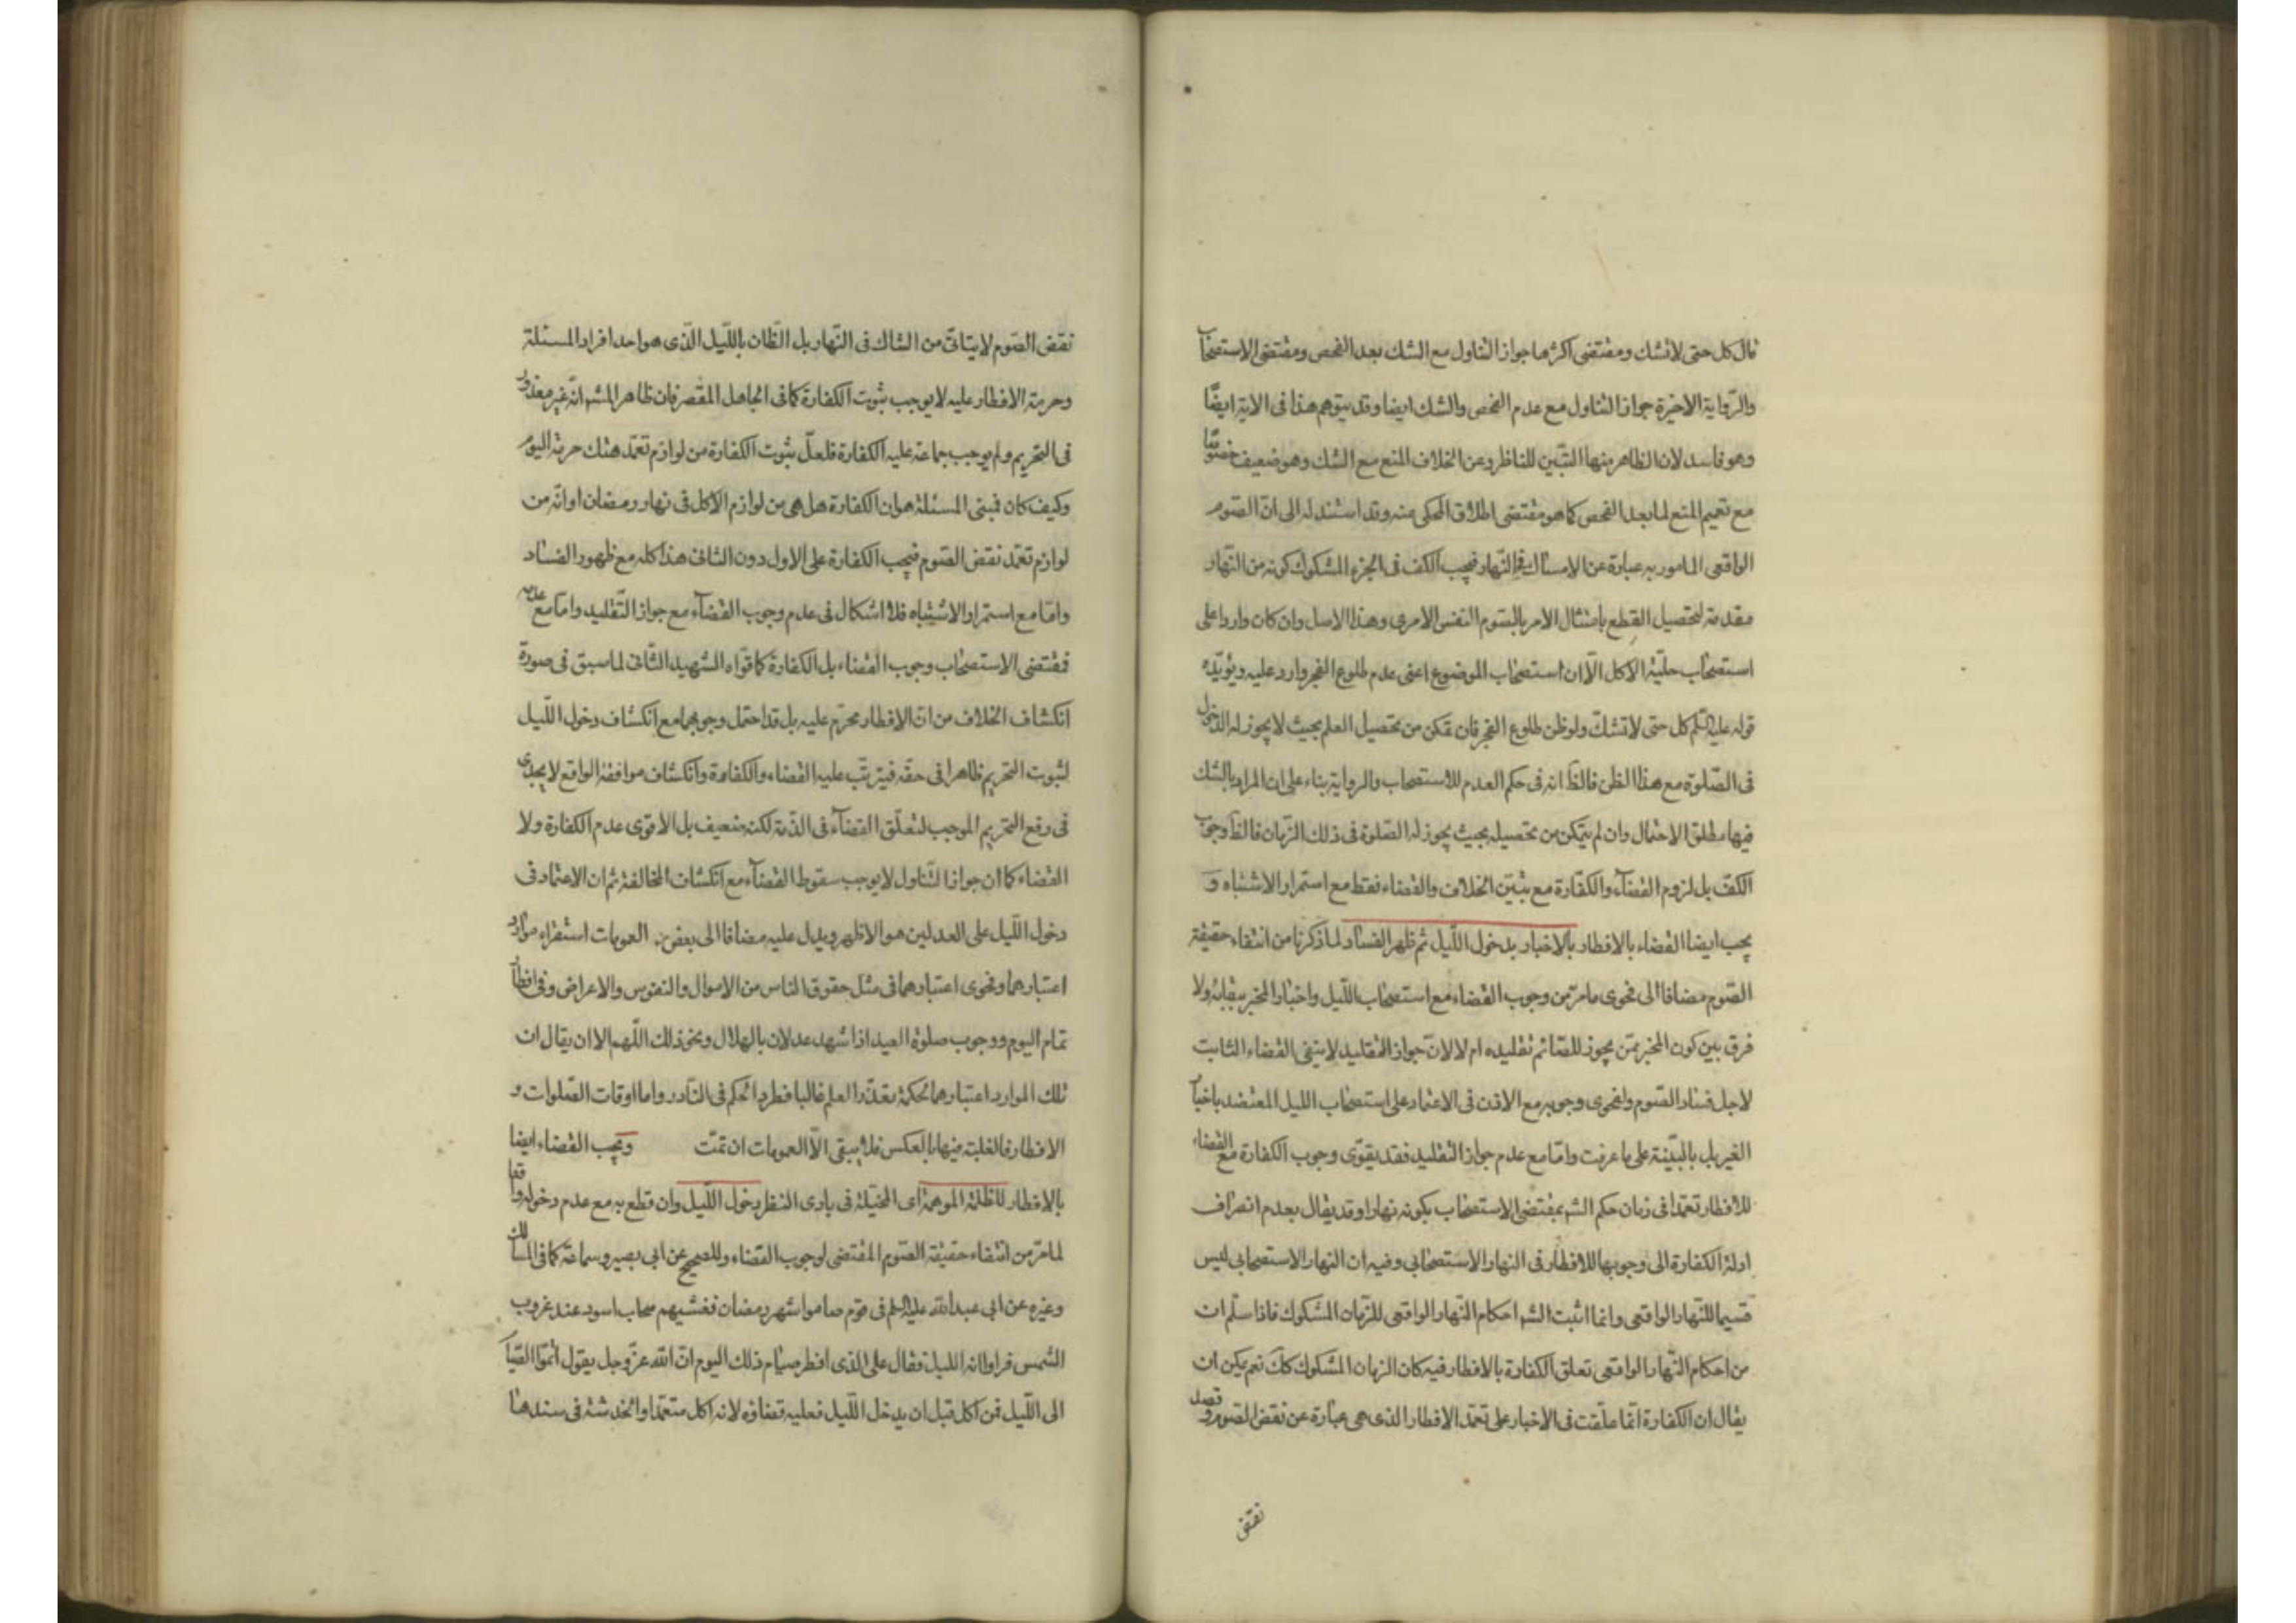 قال كل حتى لا تشك ومقتضى اكثرها جواز التناول مع الشك بعد الفحص ومقتضى الاستصحاب
والرّواية الاخيرة جواز التناول مع عدم الفحص والشك ايضا وقد يتوهم هذا فى الاية ايضًا
وهو فاسد لان الظاهر منها التبّين للناظر وعن الخلاف المنع مع الشك وهو ضعيف خصوصًا
مع تعميم المنع لما بعد الفحص كما هو مقتضى اطلاق المحكى عنه وقد استند له الى انّ الصّوم
الواقعى المامور به عبارة عن الامساك فى النّهار فيجب الكف فى الجزء المشكوك كونه من النّهار
مقدمة لتحصيل القطع بامتثال الامر بالصّوم النفس الامرى وهذا الاصل وان كان واردا على
استصحاب حلّية الاكل الّا ان استصحاب الموضوع اعنى عدم طلوع الفجر وارد عليه ويؤيّده
قوله عليه السّلم كل حتى لا تشكّ ولو ظن طلوع الفجر فان تمكن من تحصيل العلم بحيث لا يجوز له الدّخول
فى الصّلوة مع هذا الظن فالظَ انه فى حكم العدم للاستصحاب والرواية بناء على ان المراد بالشك
فيها مطلق الاحتمال وان لم يتمكن من تحصيله بحيث يجوز له الصّلوة فى ذلك الزّمان فالظَ وجوب
الكفّ بل لزوم القضآء والكفّارة مع تبيّن الخلاف والقضاء فقط مع استمرار الاشتباه وَ
يجب ايضا القضاء بالافطار بالاخبار بدخول اللّيل ثم ظهر الفساد لما ذكرنا من انتفاء حقيقة
الصّوم مضافا الى فحوى ما مرّ من وجوب القضاء مع استصحاب اللّيل واخبار المخبر ببقائه ولا
فرق بين كون المخبر ممّن يجوز للصّائم تقليده ام لا لانّ جواز التقليد لا ينفى القضاء الثابت
لاجل فساد الصّوم ولفحوى وجوبه مع الاذن فى الاعتماد على استصحاب الليل المعتضد باخبار
الغير بل بالبيّنة على ما عرفت وامّا مع عدم جواز التقليد فقد يقوّى وجوب الكفارة مع القضاء
للافطار تعمّدا فى زمان حكم الشم بمقتضى الاستصحاب بكونه نهارا وقد يقال بعدم انصراف
ادلة الكفارة الى وجوبها للافطار فى النهار الاستصحابي وفيه ان النهار الاستصحابي ليس
قسيما للنّهار الواقعى وانما اثبت الشم احكام النّهار الواقعى للزّمان المشكوك فاذا سلّم ان
من احكام النّهار الواقعى تعلق الكفارة بالافطار فيه كان الزمان المشكوك كك نعم يمكن ان
يقال ان الكفارة انّما علّقت فى الاخبار على تعمّد الافطار الذى هى عبارة عن نقض الصّوم وقصد
نقض
نقض الصّوم لا يتاتّى من الشاك فى النّهار بل الظّان باللّيل الّذى هو احد افراد المسئلة
وحرمة الافطار عليه لا يوجب ثبوت الكفارة كما فى الجاهل المقصر فان ظاهر المشم انّه غير معذور
فى التحريم ولم يوجب جماعة عليه الكفارة فلعلّ ثبوت الكفارة من لوازم تعمّد هتك حرمة اليوم
وكيف كان فمبنى المسئلة هو ان الكفارة هل هى من لوازم الاكل فى نهار رمضان او انّه من
لوازم تعمّد نقض الصّوم فيجب الكفارة على الاول دون الثانى هذا كله مع ظهور الفساد
وامّا مع استمرار الاشتباه فلا اشكال فى عدم وجوب القضآء مع جواز التّقليد وامّا مع عدمه
فمقتضى الاستصحاب وجوب القضاء بل الكفارة كما قوّاه الشهيد الثّانى لما سبق فى صورة
انكشاف الخلاف من انّ الافطار محرّم عليه بل قد احتمل وجوبهما مع انكشاف دخول اللّيل
لثبوت التحريم ظاهرا فى حقّه فيترتّب عليه القضاء والكفارة وانكشاف موافقة الواقع لا يجدى
فى رفع التحريم الموجب لتعلّق القضآء فى الذّمة لكنه ضعيف بل الاقوى عدم الكفارة ولا
القضاء كما ان جواز التّناول لا يوجب سقوط القضآء مع انكشاف المخالفة ثم ان الاعتماد فى
دخول اللّيل على العدلين هو الاظهر ويدل عليه مضافا الى بعض العمومات استقراء موارد
اعتبارهما وفحوى اعتبارهما فى مثل حقوق الناس من الاموال والنفوس والاعراض وفى افطار
تمام اليوم ووجوب صلوة العيد اذا شهد عدلان بالهلال ونحو ذلك اللّهم الا ان يقال ان
تلك الموارد اعتبارهما لحكمة تعذّر العلم غالبا فطرد الحكم فى النّادر واما اوقات الصّلوات و
الافطار فالغلبة فيها بالعكس فلا يبقى الّا العمومات ان تمّت ويجب القضاء ايضا
بالافطار للظلمة الموهمة اى المخيّلة فى بادى النظر دخول اللّيل وان قطع به مع عدم دخوله واقعا
لما مرّ من انتفاء حقيقة الصّوم المقتضى لوجوب القضاء وللصحيح عن ابي بصير وسماعة كما فى المسالك
وغيره عن ابي عبد الله عليه السلم فى قوم صاموا شهر رمضان فغشيهم سحاب اسود عند غروب
الشمس فراوا انه الليل فقال على الذى افطر صيام ذلك اليوم انّ الله عزّ وجل يقول اتمّوا الصّيام
الى اللّيل فمن اكل قبل ان يدخل اللّيل فعليه قضاؤه لانه اكل متعمّدا والخدشة فى سندها